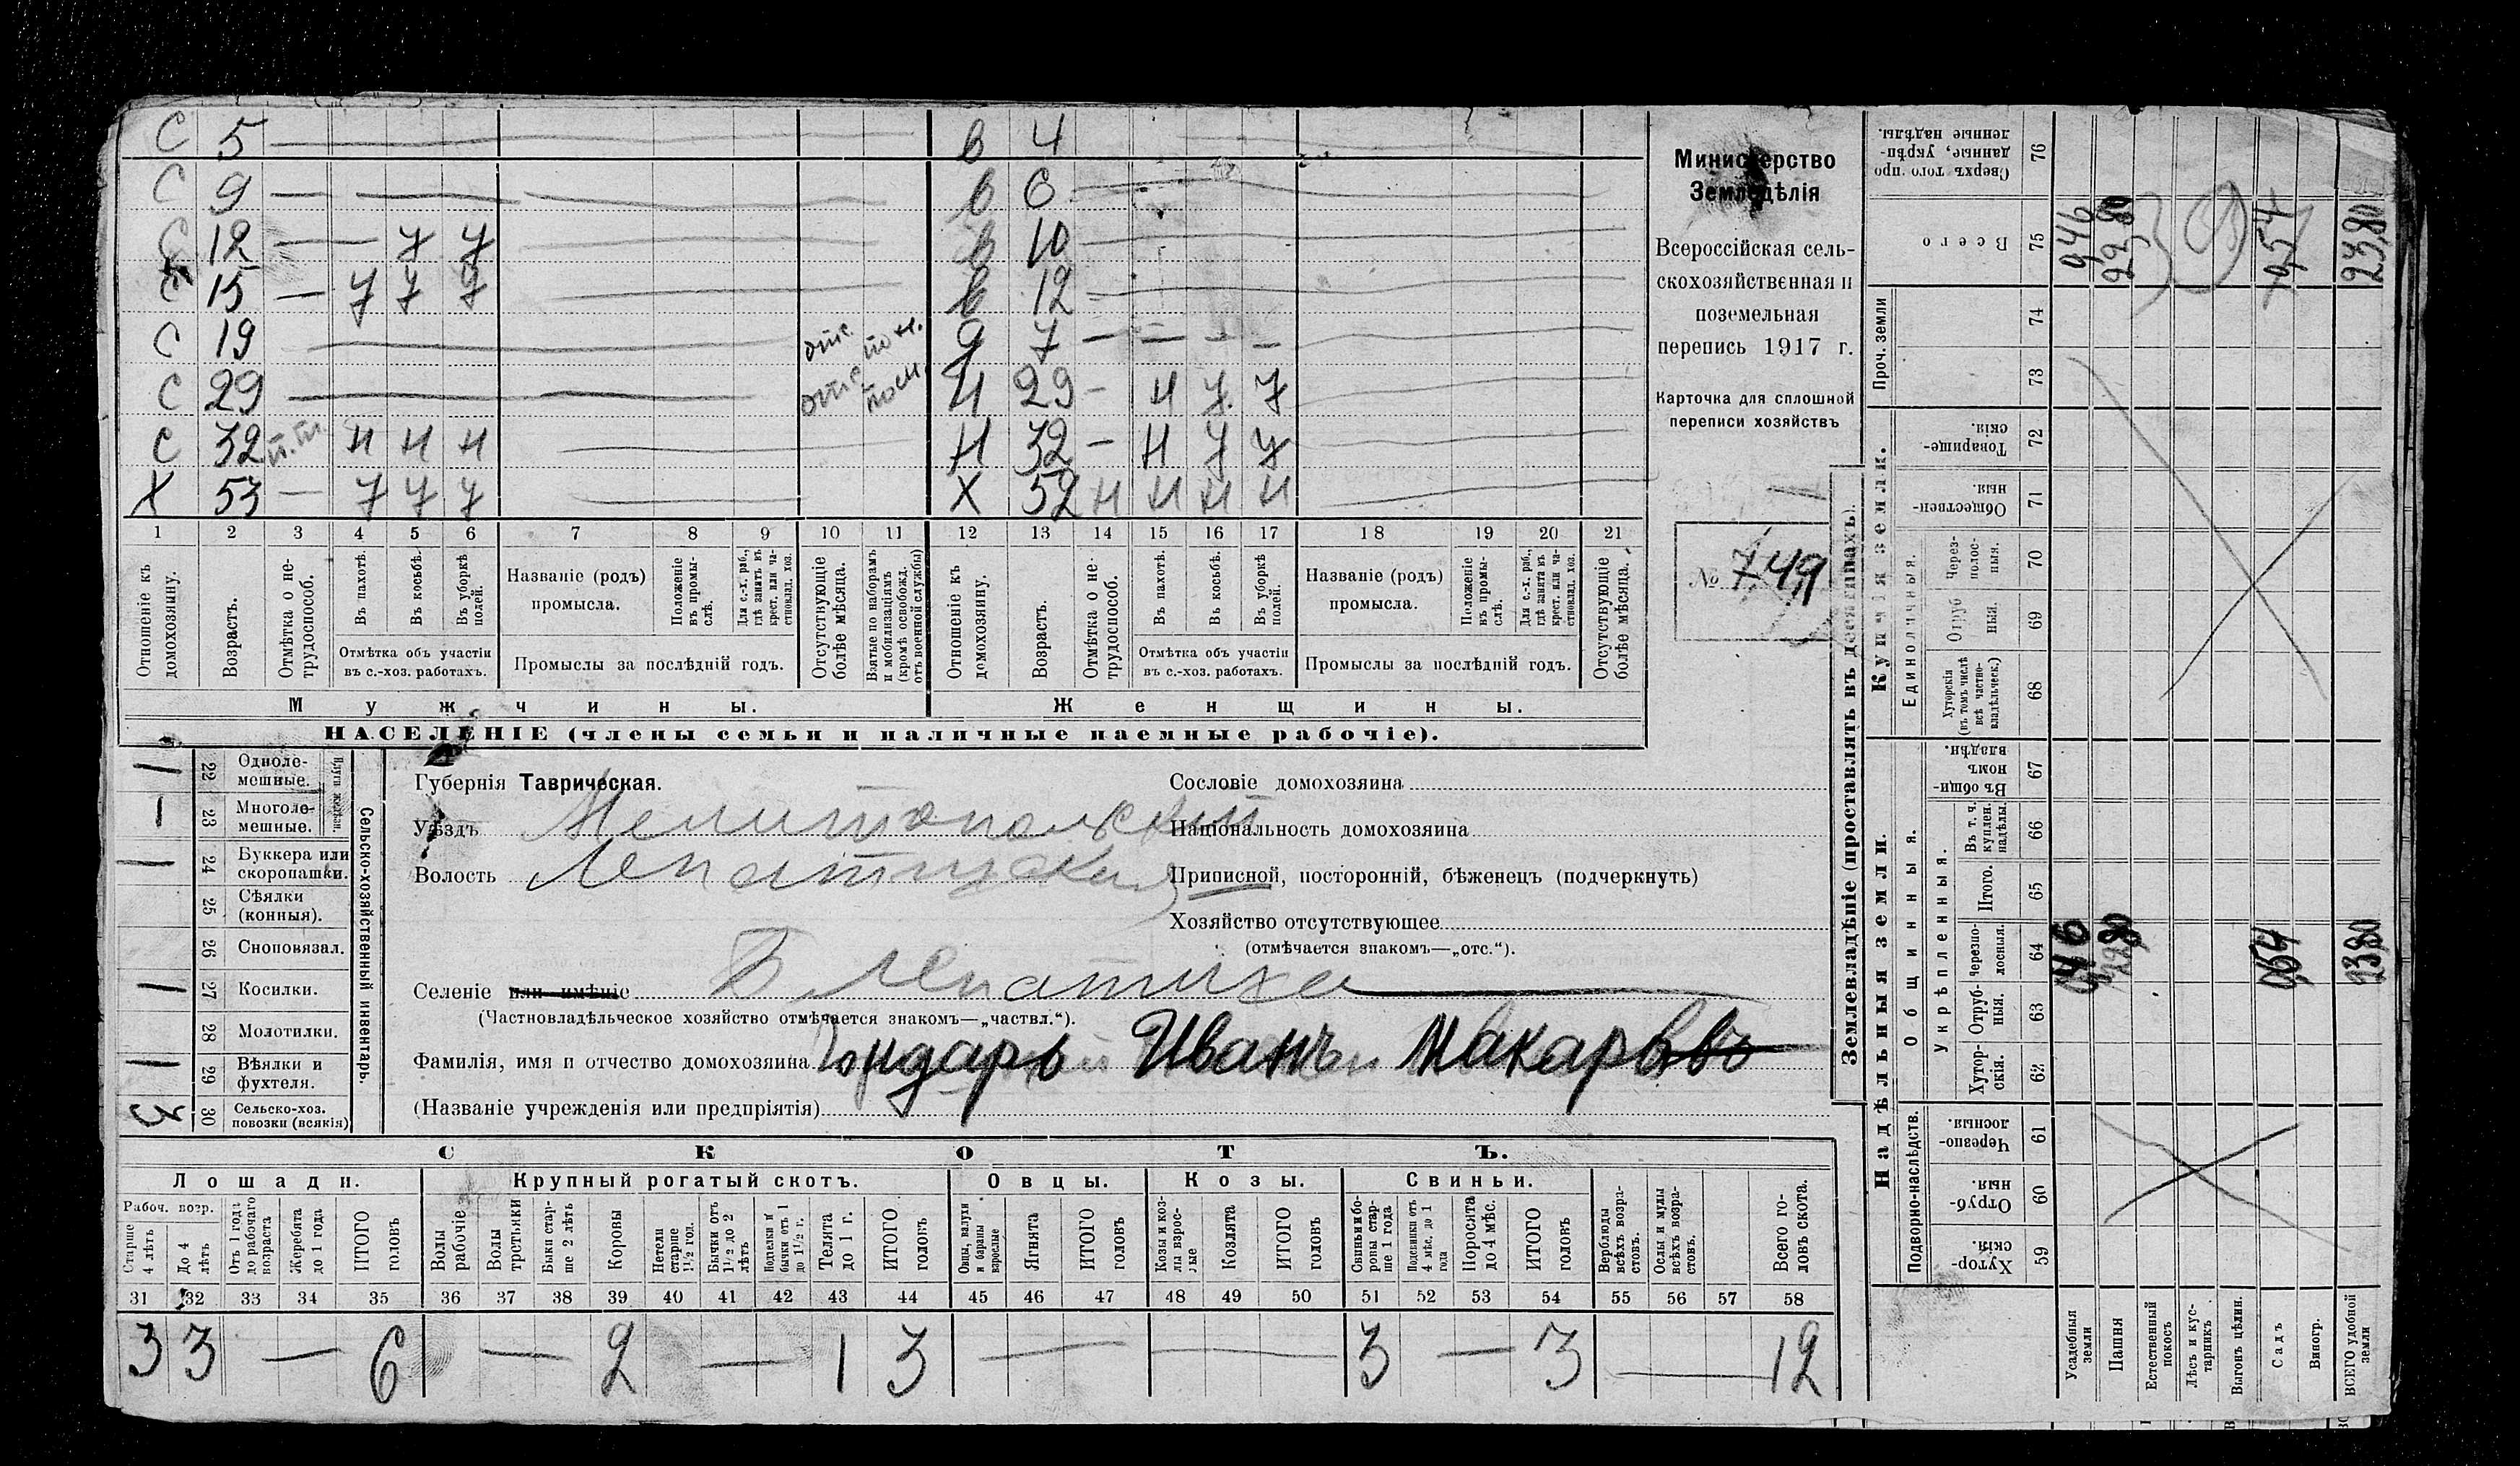 С 5 — в 4
С 9 — в 6
С 12 — 7 7 в 10
С 15 — 7 7 7 в 12
С 19 отс. д 7 —
С 29 отс. Н 29 — Н 7 7
С 32 Н Н Н Н 32 — Н 7 7
Х 53 — 7 7 7 Х 52 Н Н Н Н
1 2 3 4 5 6 7 8 9 10 11 12 13 14 15 16 17 18 19 20 21
Отношеніе къ домохозяину.
Возрастъ.
Отмѣтка о нетрудоспособ.
Въ пахотѣ.
Въ косьбѣ.
Въ уборкѣ полей.
Отмѣтка объ участіи
въ с.-хоз. работахъ.
Названіе (родъ)
промысла.
Положеніе въ промыслѣ.
Для с.-х. раб., гдѣ занятъ въ крест. или частновлад. хоз.
Промыслы за послѣдній годъ.
Отсутствующіе болѣе мѣсяца.
Взятые по наборамъ и мобилизаціямъ (кромѣ освобожд. отъ военной службы)
Отношеніе къ домохозяину.
Возрастъ.
Отмѣтка о нетрудоспособ.
Въ пахотѣ.
Въ косьбѣ.
Въ уборкѣ полей.
Отмѣтка объ участіи
въ с.-хоз. работахъ.
Названіе (родъ)
промысла.
Положеніе въ промыслѣ.
Для с.-х. раб., гдѣ занята въ крест. или частновлад. хоз.
Промыслы за послѣдній годъ.
Отсутствующіе болѣе мѣсяца.
Мужчины. Женщины.
НАСЕЛЕНІЕ (члены семьи и наличные наемные рабочіе).
Министерство
Земледѣлія
Всероссійская сель-
скохозяйственная и
поземельная
перепись 1917 г.
Карточка для сплошной
переписи хозяйствъ
№ 749
Плуги желѣзн.
22 Одноле-
мешные.
23 Многоле-
мешные.
24 Буккера или
скоропашки.
25 Сѣялки
(конныя).
26 Сноповязал.
27 Косилки.
28 Молотилки.
29 Вѣялки и
фухтеля.
3 30 Сельско-хоз.
повозки (всякія)
Сельско-хозяйственный инвентарь.
Губернія Таврическая.
Уѣздъ Мелитопольскій
Волость Лепатихская
Селеніе или имѣніе Б Лепатиха
(Частновладѣльческое хозяйство отмѣчается знакомъ—„частвл.“).
Фамилія, имя и отчество домохозяина Иванъ Макаровъ
(Названіе учрежденія или предпріятія)
Сословіе домохозяина
Національность домохозяина
Приписной, посторонній, бѣженецъ (подчеркнуть)
Хозяйство отсутствующее
(отмѣчается знакомъ—„отс.“).
СКОТЪ.
Лошади. Крупный рогатый скотъ. Овцы. Козы. Свиньи.
Рабоч. возр.
Старше 4 лѣтъ
До 4 лѣтъ
Отъ 1 года до рабочаго возраста
Жеребята до 1 года
ИТОГО головъ
Волы рабочіе
Волы третьяки
Быки старше 2 лѣтъ
Коровы
Нетели старше 1½ год.
Бычки отъ 1½ до 2 лѣтъ
Подтелки и бычки отъ 1 до 1½ г.
Телята до 1 г.
ИТОГО головъ
Овцы, валухи и бараны взрослые
Ягнята
ИТОГО головъ
Козы и козлы взрослые
Козлята
ИТОГО головъ
Свиньи боровы старше 1 года
Подсвинки отъ 4 мѣс. до 1 года
Поросята до 4 мѣс.
ИТОГО головъ
Верблюды всѣхъ возрастовъ.
Ослы и мулы всѣхъ возрастовъ.
Всего головъ скота.
31 32 33 34 35 36 37 38 39 40 41 42 43 44 45 46 47 48 49 50 51 52 53 54 55 56 57 58
3 3 — 6 — 2 — 1 3 — — 3 — 3 — 12
Землевладѣніе (проставлять въ десятинахъ).
Надѣльныя земли. Купчія земли. Проч. земли
Подворно-наслѣдств.
Общинныя.
Укрѣпленныя.
Единоличныя.
59 Хуторскія.
60 Отрубныя.
61 Черезполосныя.
62 Хуторскія.
63 Отрубныя.
64 Черезполосныя.
65 Итого.
66 Въ т. ч. куплен. надѣлы.
67 Въ общинномъ владѣн.
68 Хуторскія (въ томъ числѣ всѣ частновладѣльческ.)
69 Отрубныя.
70 Черезполосныя.
71 Общественныя.
72 Товарищескія.
73
74
75 Всего
76 Сверхъ того проданные, укрѣпленные надѣлы.
Усадебныя земли
Пашня
Естественный покосъ
Лѣсъ и кустарникъ
Выгонъ цѣлин.
Садъ
Виногр.
ВСЕГО удобной земли
0,46 22,80 0,54 23,80
0,46 22,80 0,54 23,80